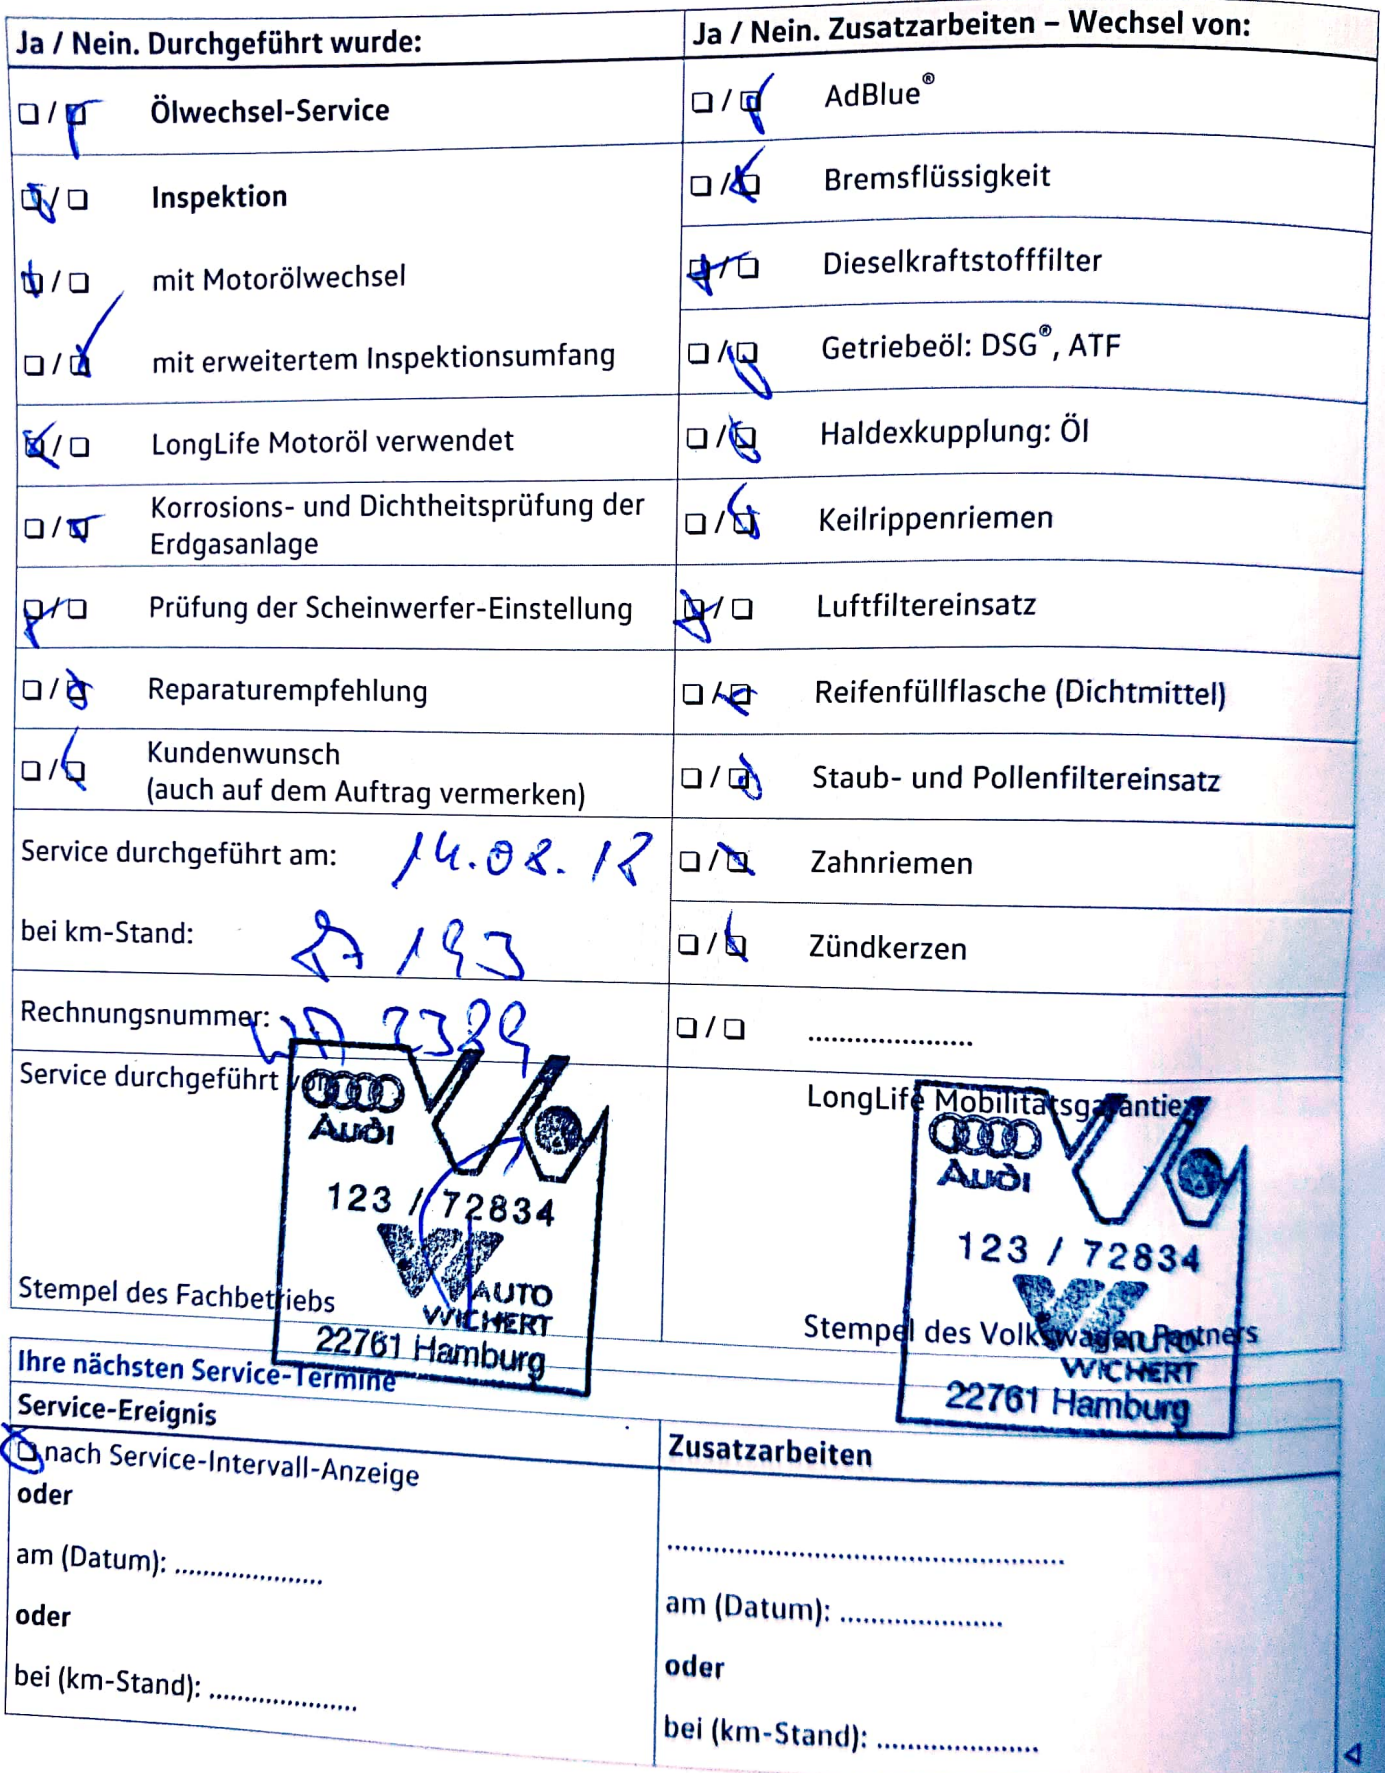 Ja / Nein. Durchgeführt wurde:
Ölwechsel-Service
Inspektion
mit Motorölwechsel
mit erweitertem Inspektionsumfang
LongLife Motoröl verwendet
Korrosions- und Dichtheitsprüfung der
Erdgasanlage
Prüfung der Scheinwerfer-Einstellung
Reparaturempfehlung
Kundenwunsch
(auch auf dem Auftrag vermerken)
Service durchgeführt am: 14.08.18
bei km-Stand: 193
Rechnungsnummer:
Service durchgeführt von:
Audi
123 / 72834
AUTO
WICHERT
22761 Hamburg
Stempel des Fachbetriebs
Ja / Nein. Zusatzarbeiten – Wechsel von:
AdBlue®
Bremsflüssigkeit
Dieselkraftstofffilter
Getriebeöl: DSG®, ATF
Haldexkupplung: Öl
Keilrippenriemen
Luftfiltereinsatz
Reifenfüllflasche (Dichtmittel)
Staub- und Pollenfiltereinsatz
Zahnriemen
Zündkerzen
.....................
LongLife Mobilitätsgarantie:
Audi
123 / 72834
AUTO
WICHERT
22761 Hamburg
Stempel des Volkswagen Partners
Ihre nächsten Service-Termine
Service-Ereignis
nach Service-Intervall-Anzeige
oder
am (Datum): .....................
oder
bei (km-Stand): .....................
Zusatzarbeiten
.....................................................
am (Datum): .....................
oder
bei (km-Stand): .....................